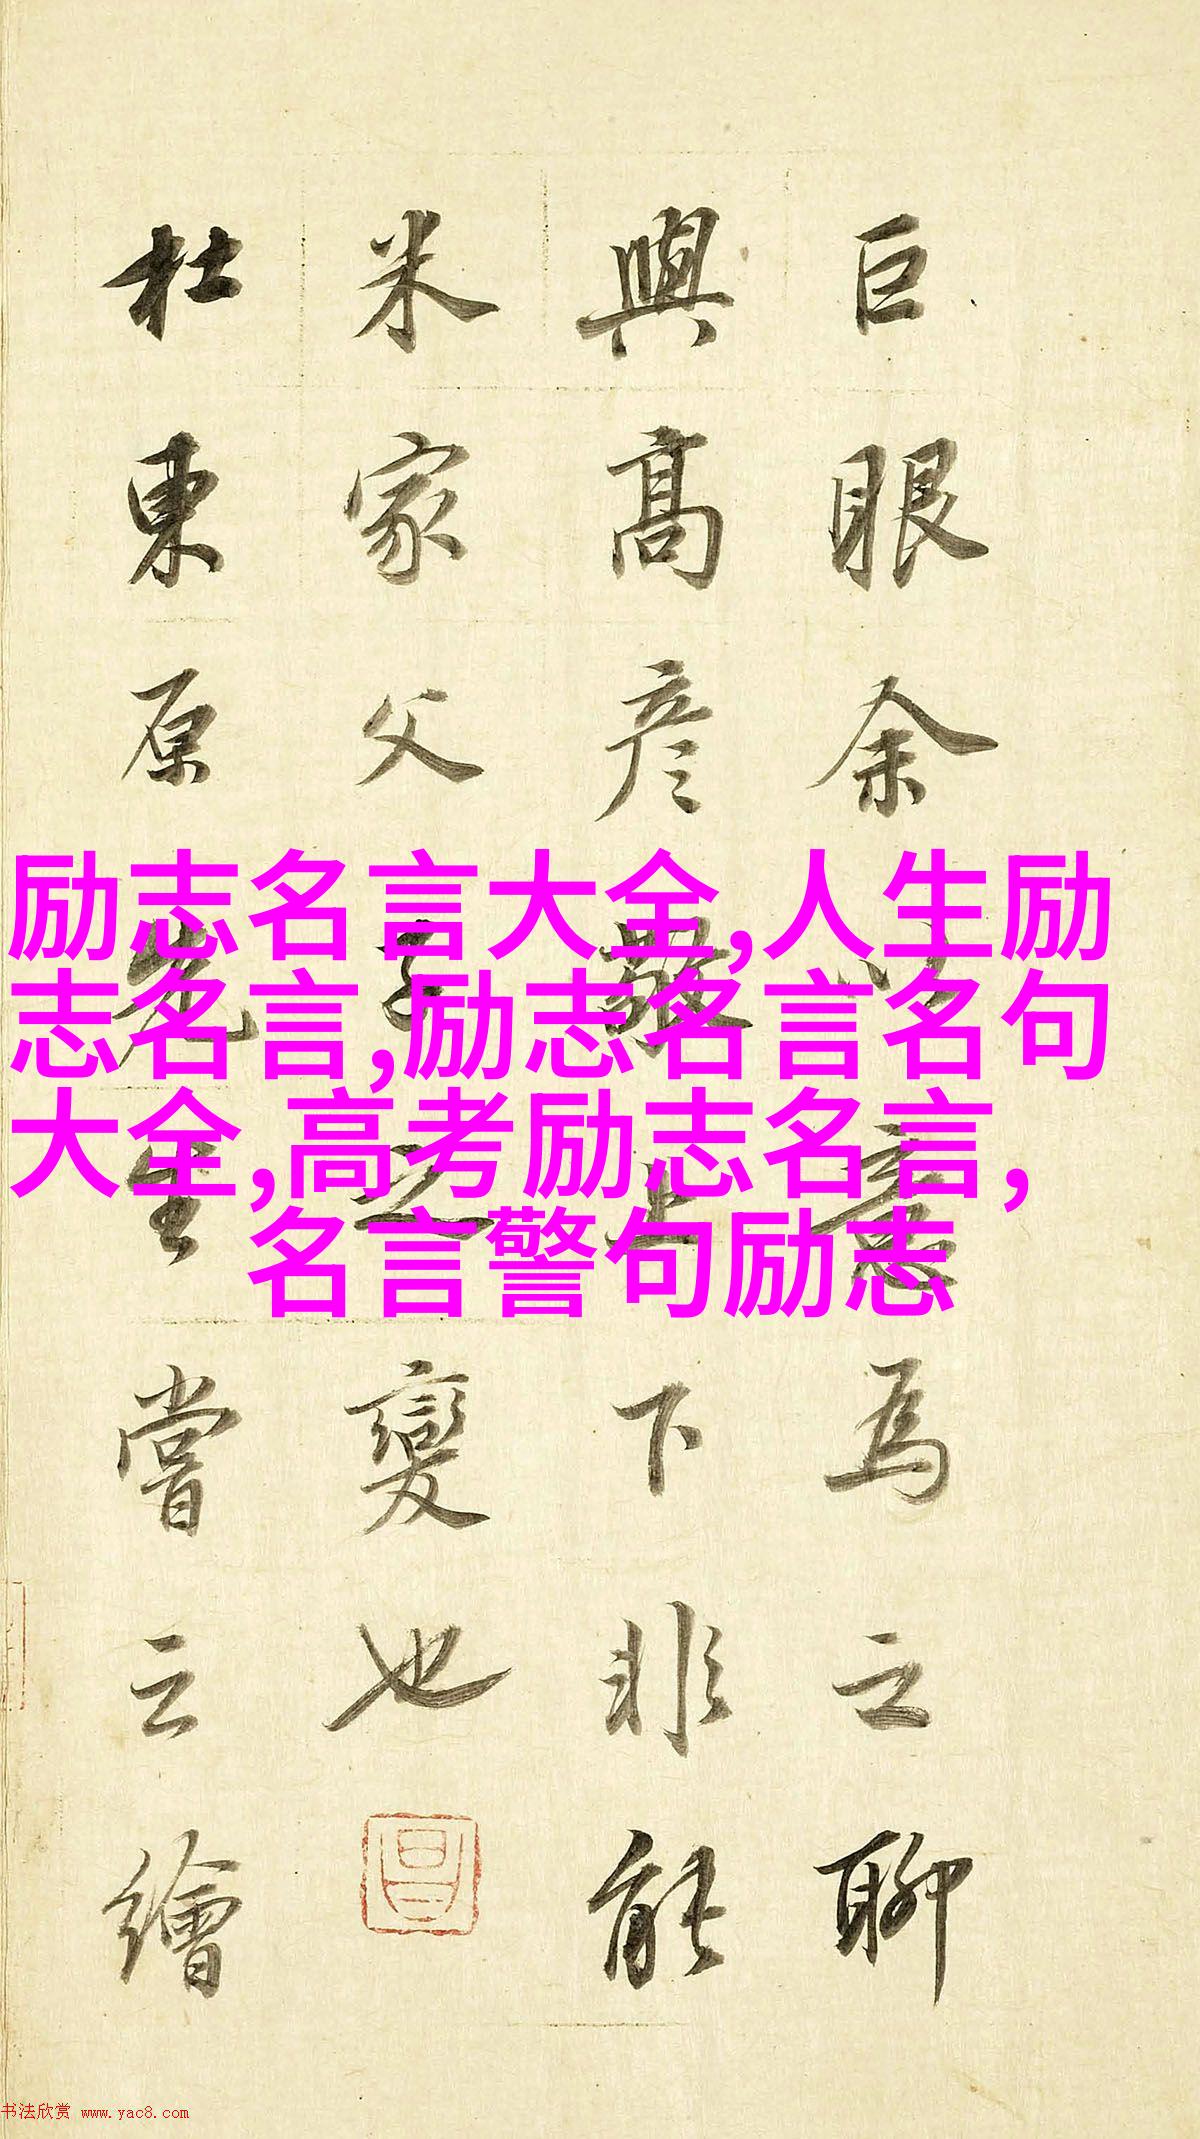 巨眼余以意為之聊
與高彥敬上下非能
米家父子之變也
杜東原先生嘗云繪
励志名言大全,人生励
志名言,励志名言名句
大全,高考励志名言,
名言警句励志
书法欣赏 www.yac8.com